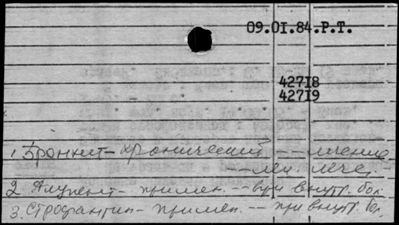 09.01.84.Р.Т.
42718
42719
1. Бронхит- хронический -- лечение
-- лек. лечен.
2. Алупент- примен. -- при внутр. бол.
3. Строфантин- примен. -- при внутр. бол.